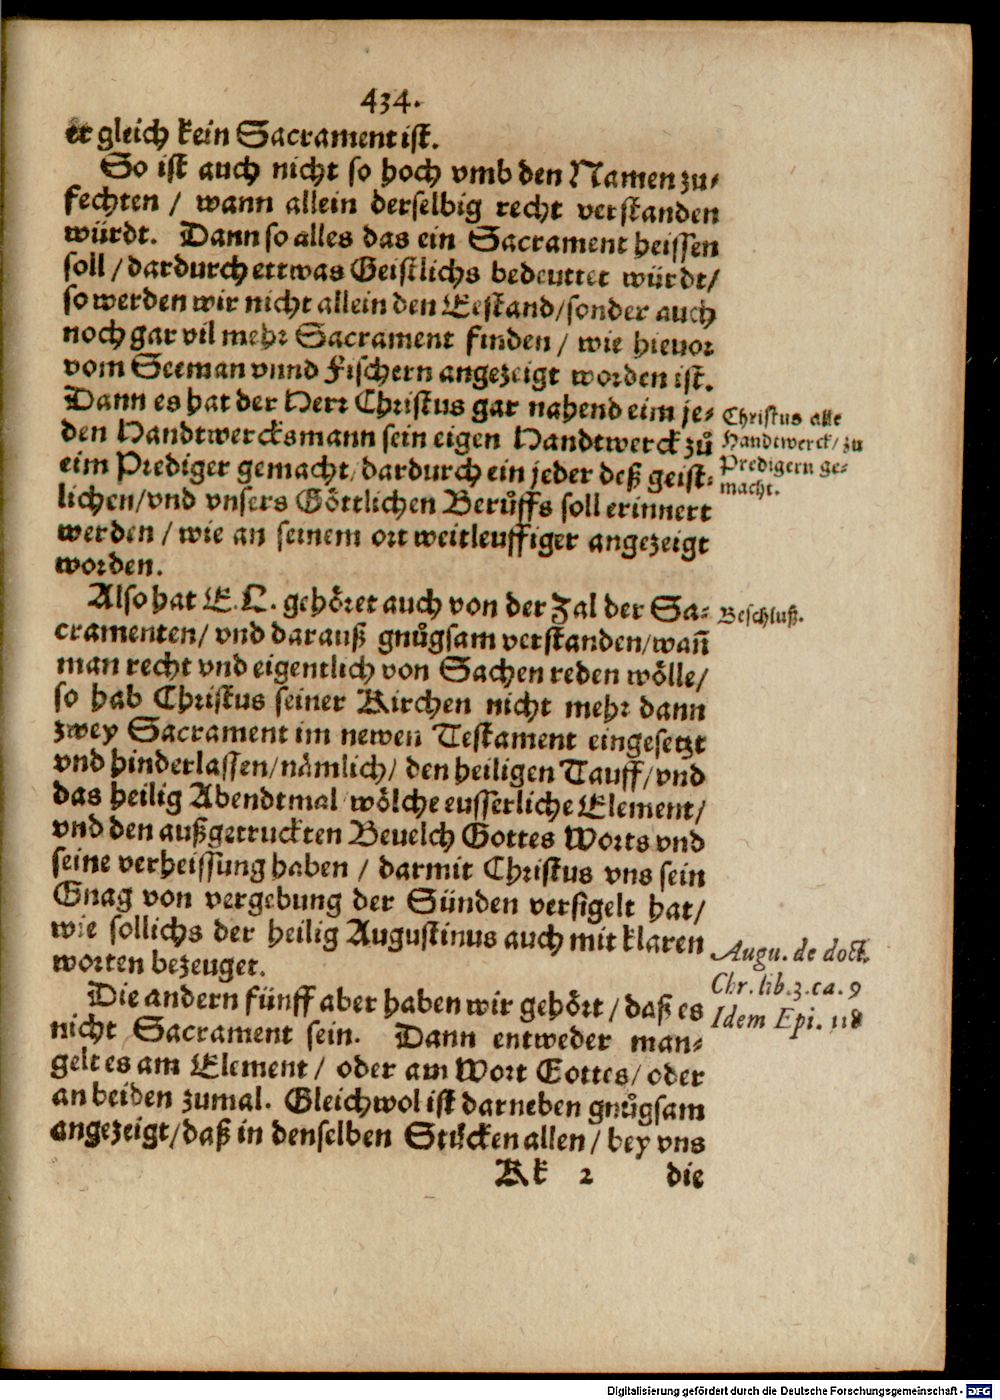 434.
er gleich kein Sacrament ist.
So ist auch nicht so hoch vmb den Namen zu⸗
fechten / wann allein derselbig recht verstanden
würdt. Dann so alles das ein Sacrament heissen
soll / dardurch ettwas Geistlichs bedeuttet würdt/
so werden wir nicht allein den Eestand/sonder auch
noch gar vil mehr Sacrament finden / wie hieuor
vom Seeman vnnd Fischern angezeigt worden ist.
Dann es hat der Herr Christus gar nahend eim je⸗
den Handtwercksmann sein eigen Handtwerck zů
eim Prediger gemacht/dardurch ein jeder deß geist⸗
lichen/vnd vnsers Göttlichen Berůffs soll erinnert
werden / wie an seinem ort weitleuffiger angezeigt
worden.
Christus alle
Handtwerck/ zu
Predigern ge⸗
macht.
Also hat E. L. gehöret auch von der Zal der Sa⸗
cramenten/ vnd darauß gnůgsam verstanden/wañ
man recht vnd eigentlich von Sachen reden wölle/
so hab Christus seiner Kirchen nicht mehr dann
zwey Sacrament im newen Testament eingesetzt
vnd hinderlassen/nämlich/ den heiligen Tauff/vnd
das heilig Abendtmal wölche eusserliche Element/
vnd den außgetruckten Beuelch Gottes Worts vnd
seine verheissung haben / darmit Christus vns sein
Gnag von vergebung der Sünden versigelt hat/
wie sollichs der heilig Augustinus auch mit klaren
worten bezeuget.
Beschluß.
Augu. de doct.
Chr. lib. 3. ca. 9
Idem Epi. 118
Die andern fünff aber haben wir gehört / daß es
nicht Sacrament sein. Dann entweder man⸗
gelt es am Element / oder am Wort Gottes/ oder
an beiden zumal. Gleichwol ist darneben gnůgsam
angezeigt/daß in denselben Stücken allen / bey vns
Kk 2 die
Digitalisierung gefördert durch die Deutsche Forschungsgemeinschaft - DFG